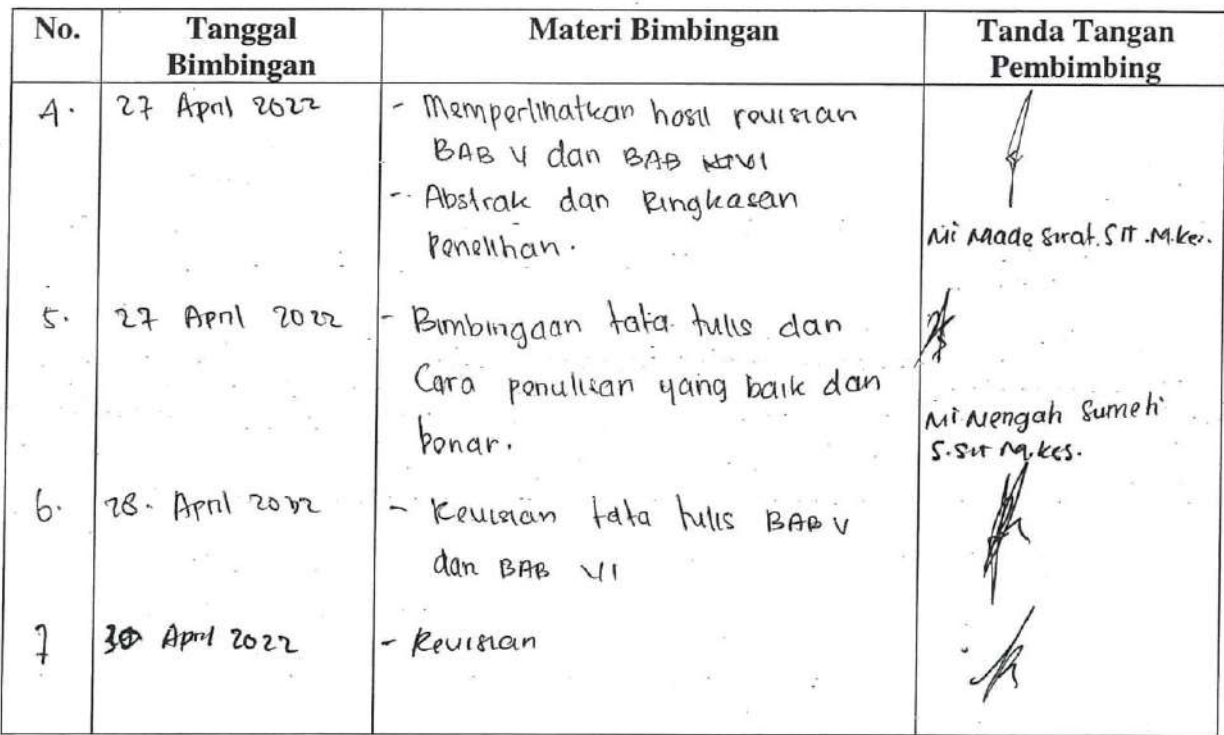 No. Tanggal Bimbingan Materi Bimbingan Tanda Tangan Pembimbing
4. 27 April 2022 - Memperlihatkan hasil revisian
BAB V dan BAB VI
- Abstrak dan Ringkasan
Penelitian.
Ni Made Sirat. SIT. M.Kes.
5. 27 April 2022 - Bimbingaan tata tulis dan
Cara penulisan yang baik dan
benar.
Ni Nengah Sumeti
S.SiT M.Kes.
6. 28. April 2022 - Revisian tata tulis BAB V
dan BAB VI
7 30 April 2022 - Revisian